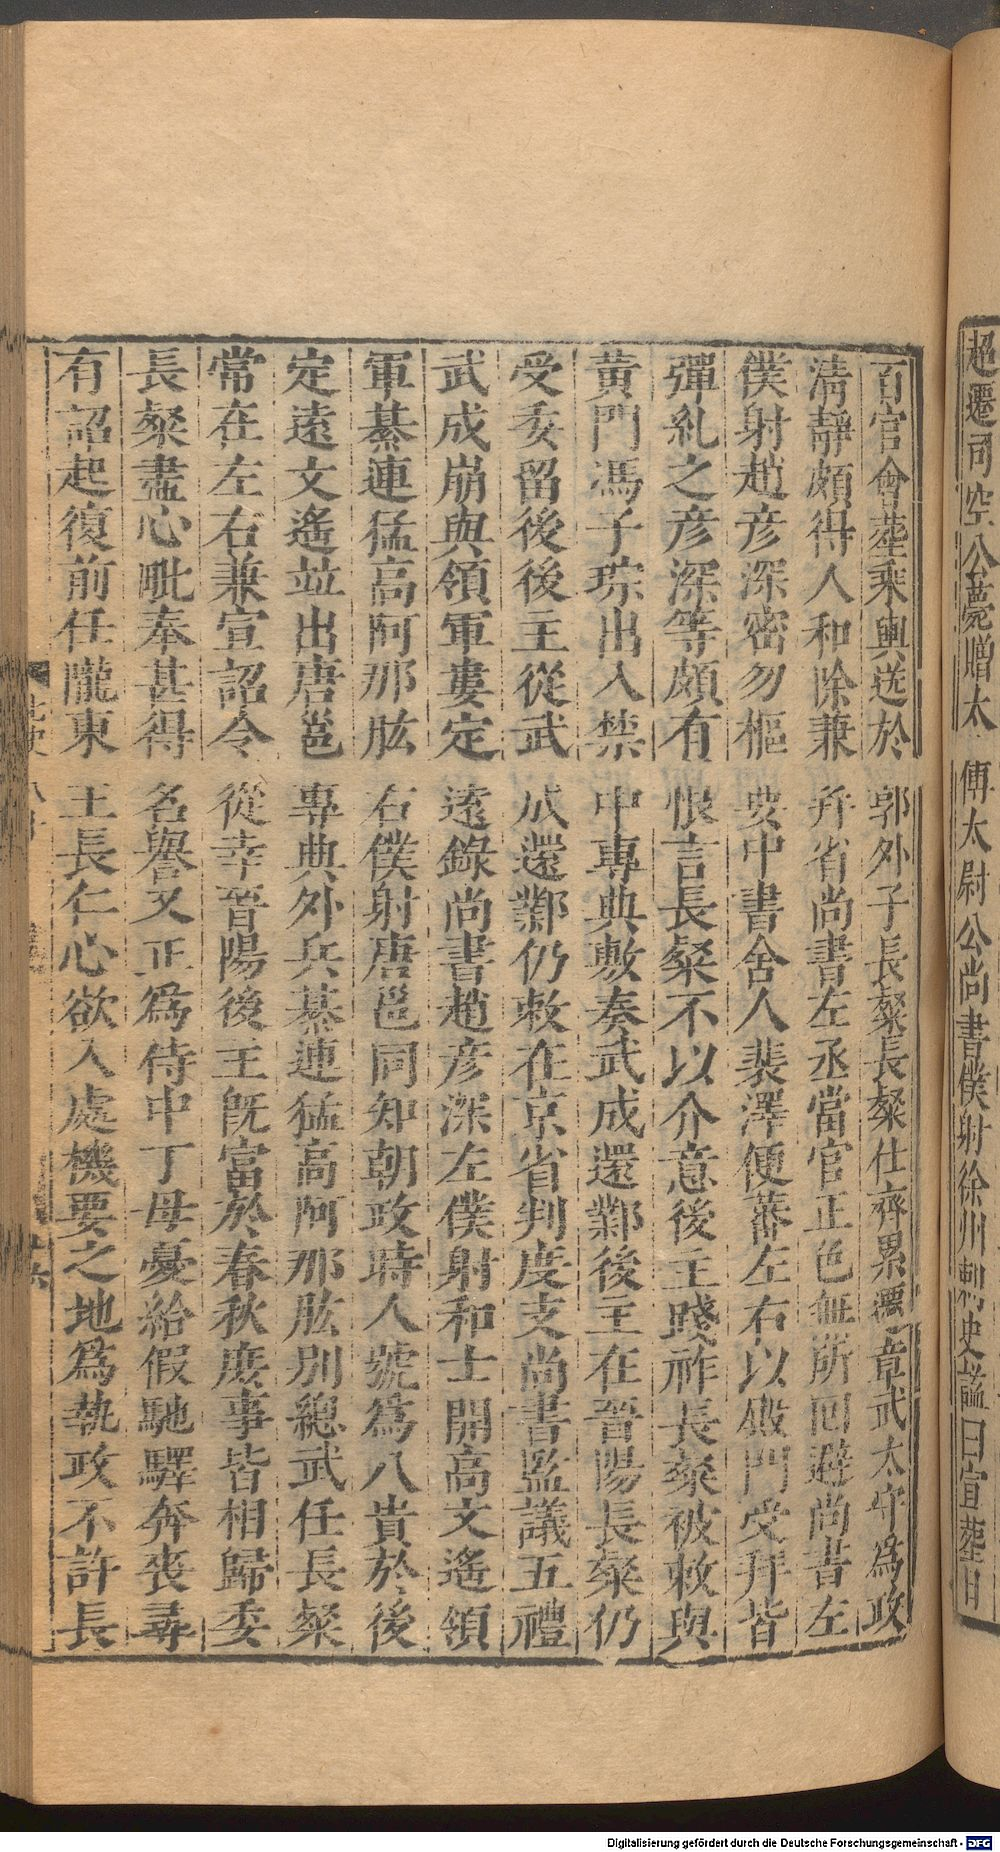 超遷司空公薨贈太傅太尉公尚書僕射徐州刺史諡曰宣葬日
百官會葬乘輿送於郭外子長粲長粲仕齊累遷章武太守爲政
清靜頗得人和除兼幷省尚書左丞當官正色無所回避尚書左
僕射趙彦深密勿樞要中書舍人裴澤便蕃左右以殿門受拜皆
彈糺之彦深等頗有恨言長粲不以介意後主踐祚長粲被敕與
黃門馮子琮出入禁中專典敷奏武成還鄴後主在晉陽長粲仍
受委留後後主從武成還鄴仍敕在京省判度支尚書監議五禮
武成崩與領軍婁定遠錄尚書趙彦深左僕射和士開高文遙領
軍綦連猛高阿那肱右僕射唐邕同知朝政時人號爲八貴於後
定遠文遙竝出唐邕專典外兵綦連猛高阿那肱別總武任長粲
常在左右兼宣詔令從幸晉陽後主旣富於春秋庶事皆相歸委
長粲盡心毗奉甚得名譽又正爲侍中丁母憂給假馳驛奔喪尋
有詔起復前任隴東王長仁心欲入處機要之地爲執政不許長
北史
Digitalisierung gefördert durch die Deutsche Forschungsgemeinschaft - DFG